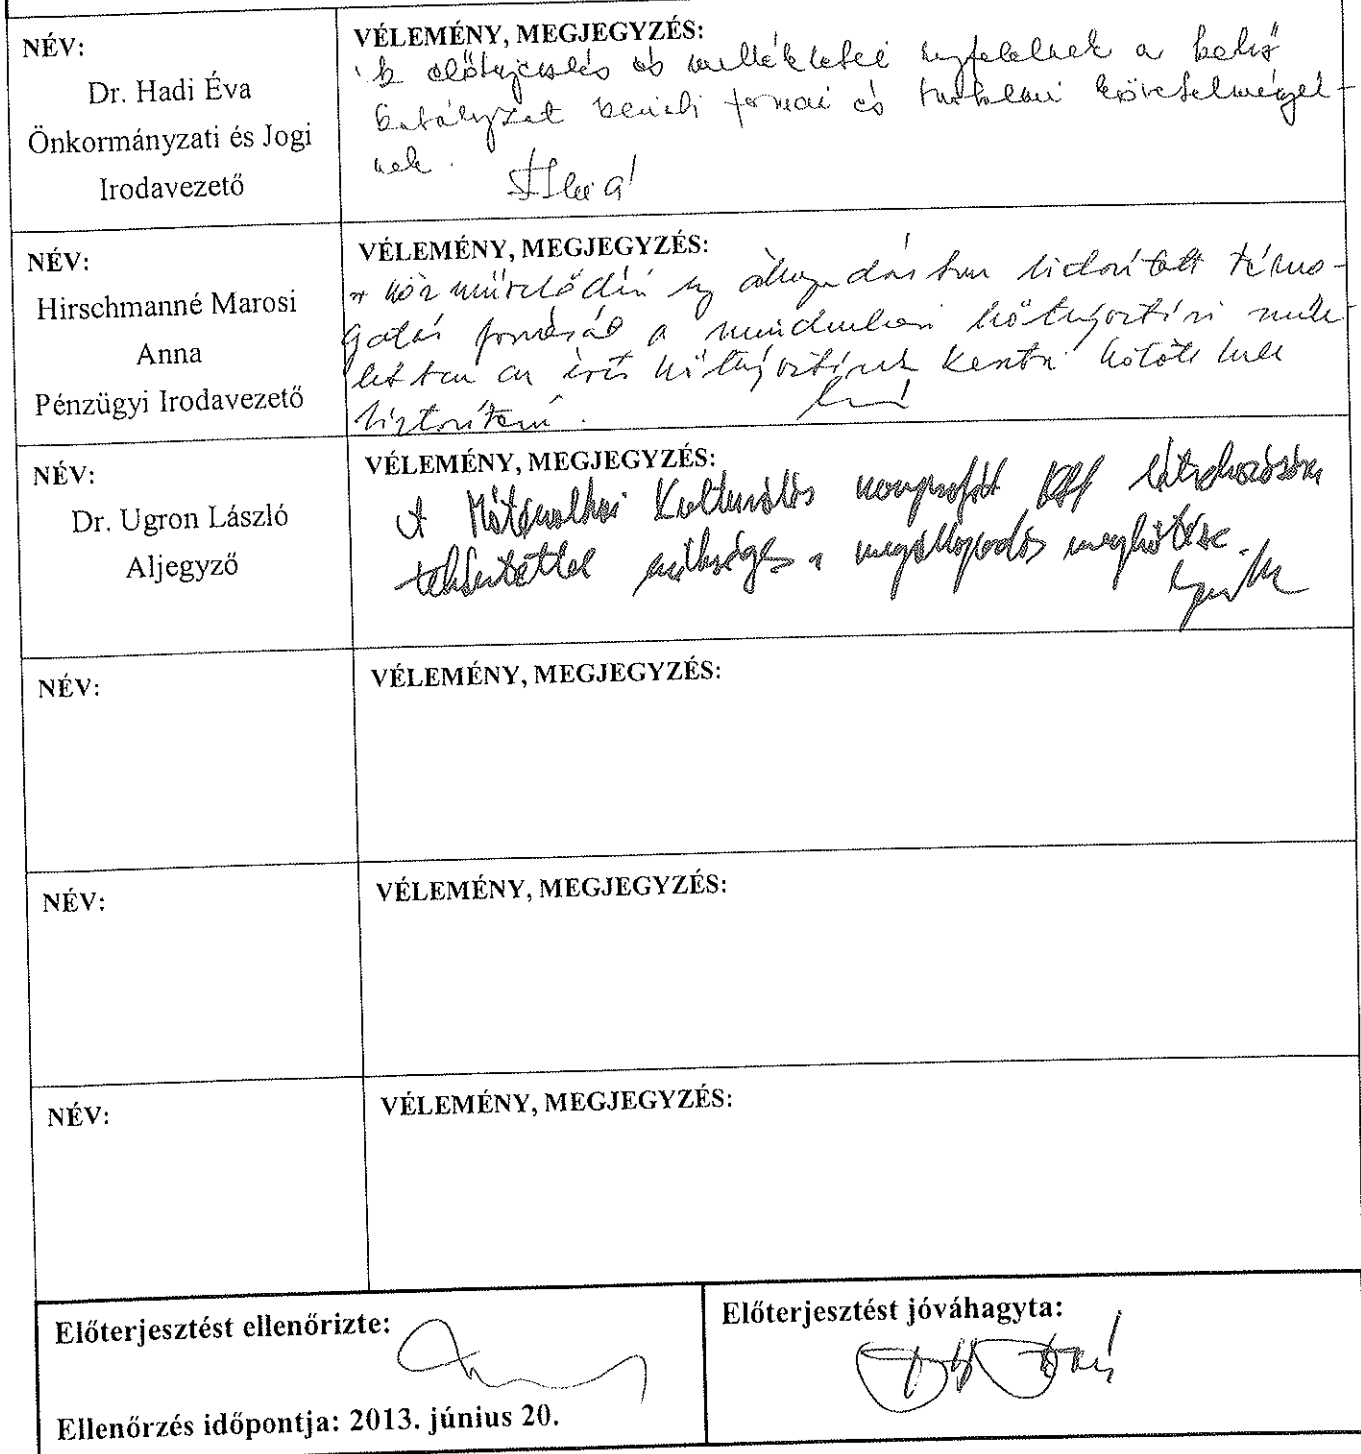 NÉV:
Dr. Hadi Éva
Önkormányzati és Jogi
Irodavezető
VÉLEMÉNY, MEGJEGYZÉS:
előterjesztés és mellékletei megfelelnek a belső
szabályzat szerinti formai és tartalmi követelményei-
nek.
NÉV:
Hirschmanné Marosi
Anna
Pénzügyi Irodavezető
VÉLEMÉNY, MEGJEGYZÉS:
A közművelődési támo-
gatás a mindenkori költségvetési
az éves költségvetésünk
biztosítani.
NÉV:
Dr. Ugron László
Aljegyző
VÉLEMÉNY, MEGJEGYZÉS:
A Kulturális nonprofit Kft létrehozására
tekintettel szükséges a megállapodás megkötése.
NÉV:
VÉLEMÉNY, MEGJEGYZÉS:
NÉV:
VÉLEMÉNY, MEGJEGYZÉS:
NÉV:
VÉLEMÉNY, MEGJEGYZÉS:
Előterjesztést ellenőrizte:
Ellenőrzés időpontja: 2013. június 20.
Előterjesztést jóváhagyta: